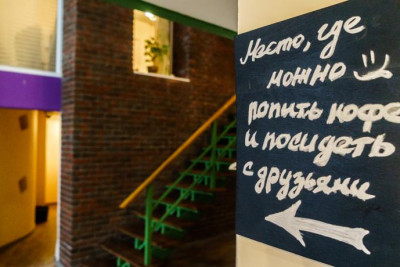 Место, где
можно
попить кофе
и посидеть
с друзьями